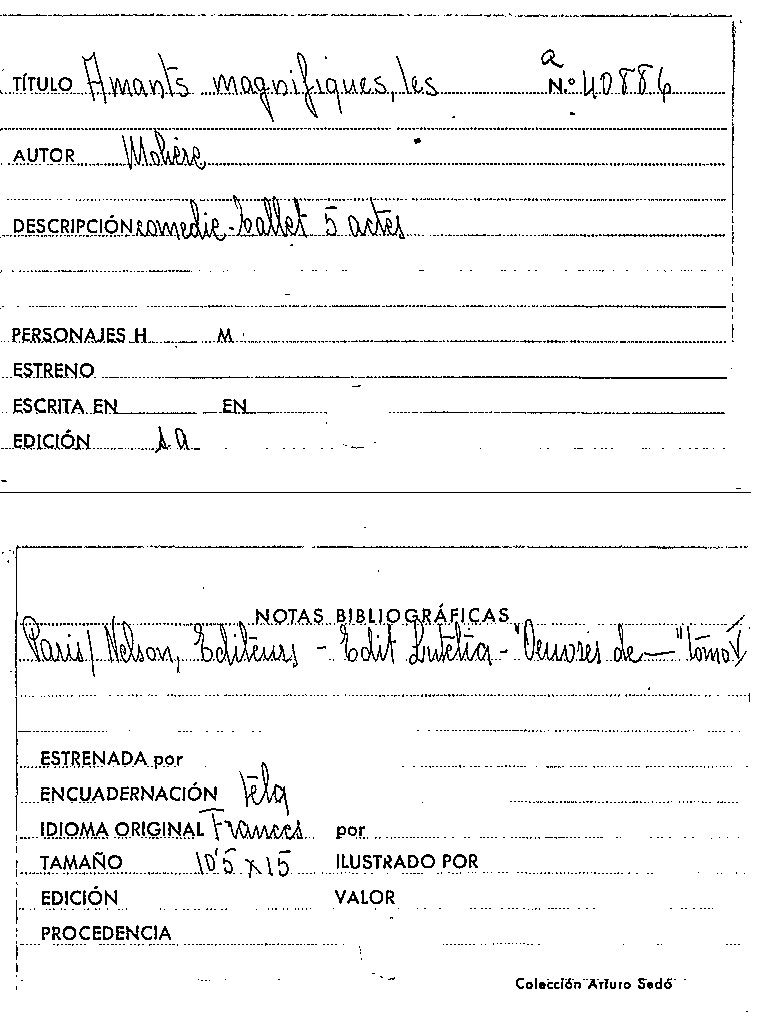 a
TÍTULO Amants magnifiques, les N.º 40886
AUTOR Molière
DESCRIPCIÓN comedie-ballet 5 actes
PERSONAJES H M
ESTRENO
ESCRITA EN EN
EDICIÓN 1a
NOTAS BIBLIOGRÁFICAS
Paris / Nelson, Editeurs - Edit Lutetia - "Oeuvres de —" tomo V
ESTRENADA por
ENCUADERNACIÓN Tela
IDIOMA ORIGINAL Frances por
TAMAÑO 10'5 x 15 ILUSTRADO POR
EDICIÓN VALOR
PROCEDENCIA
Colección Arturo Sedó